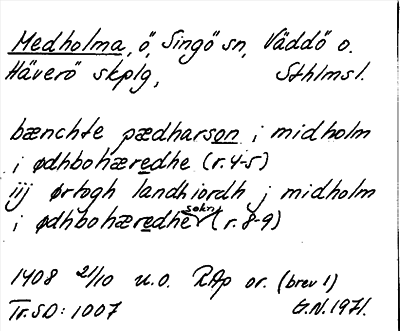 Medholma, ö, Singö sn, Väddö o.
Häverö skplg, Sthlmsl.
bænchte pædharson i midholm
i ødhbohæredhe (r. 4-5)
iij ørtogh landhiordh j midholm
i ødhbohæredhe sokn (r. 8-9)
1408 21/10 u.o. RAp or. (brev 1)
Tr. SD: 1007 G.N. 1971.